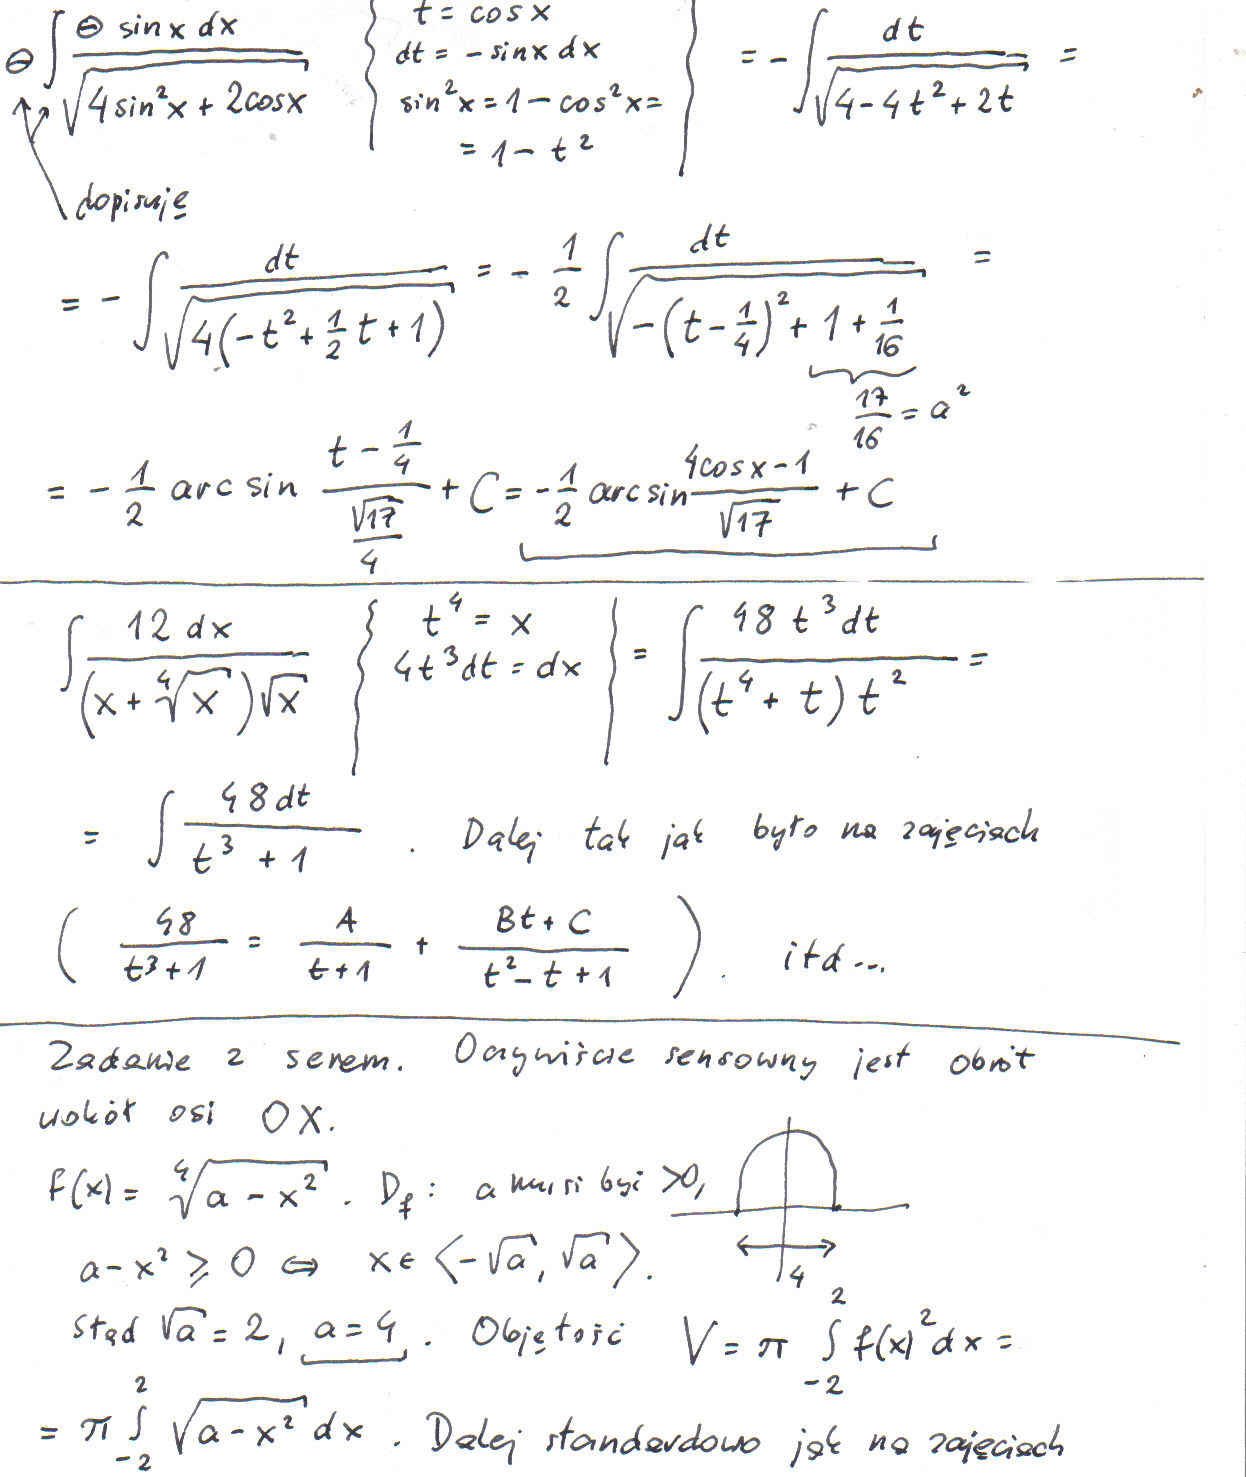 ⊖∫ ⊖ sinx dx / √(4sin²x + 2cosx) { t = cosx  dt = −sinx dx  sin²x = 1 − cos²x = = 1 − t² } = −∫ dt / √(4−4t²+2t) =
dopisuję
= −∫ dt / √(4(−t²+½t+1)) = −½ ∫ dt / √(−(t−¼)²+1+1/16) =
17/16 = a²
= −½ arcsin (t−¼)/(√17/4) + C = −½ arcsin (4cosx−1)/√17 + C
∫ 12 dx / ((x+⁴√x)√x) { t⁴ = x  4t³dt = dx } = ∫ 48 t³dt / ((t⁴+t) t²) =
= ∫ 48dt / (t³+1) . Dalej tak jak było na zajęciach
( 48/(t³+1) = A/(t+1) + (Bt+C)/(t²−t+1) ). itd...
Zadanie z serem. Oczywiście sensowny jest obrót
wokół osi OX.
f(x) = ⁴√(a−x²) . D_f : a musi być >0,
a−x² ⩾ 0 ⇔ x∈⟨−√a, √a⟩.
4
Stąd √a = 2, a=4. Objętość V = π ∫₋₂² f(x)²dx =
= π ∫₋₂² √(a−x²) dx . Dalej standardowo jak na zajęciach